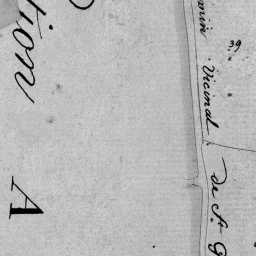 tion
A
min Vicinal de St. G
39